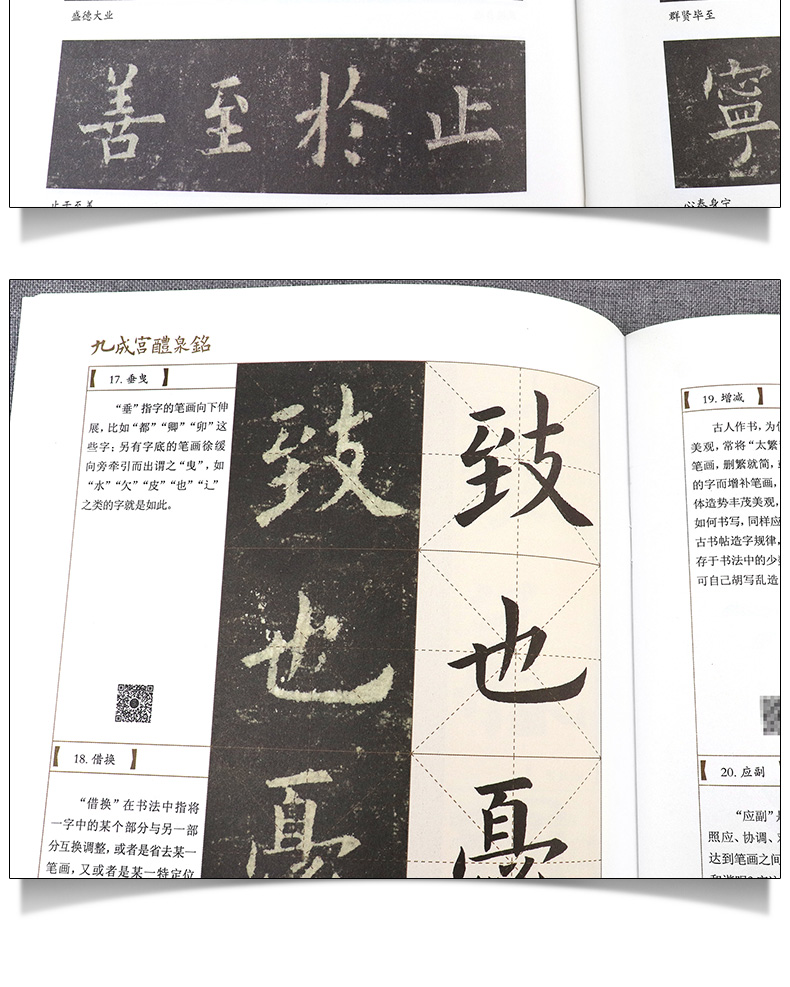 盛德大业
群贤毕至
善至於止
寧
止于至善
心泰身宁
九成宮醴泉銘
17. 垂曳
“垂”指字的笔画向下伸
展，比如“都”“卿”“卯”这
些字；另有字底的笔画徐缓
向旁牵引而出谓之“曳”，如
“水”“欠”“皮”“也”“辶”
之类的字就是如此。
致
致
也
也
18. 借换
“借换”在书法中指将
一字中的某个部分与另一部
分互换调整，或者是省去某一
笔画，又或者是某一特定位
憂
憂
19. 增减
古人作书，为
美观，常将“太繁
笔画，删繁就简，
的字而增补笔画，
体造势丰茂美观，
如何书写，同样应
古书帖造字规律，
存于书法中的少
可自己胡写乱造
20. 应副
“应副”
照应、协调、
达到笔画之间